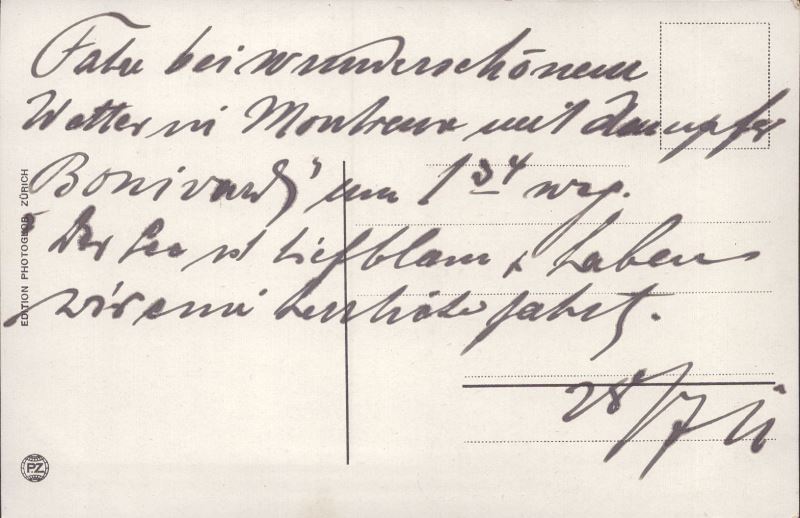 Fahre bei wunderschönem
Wetter in Montreux mit Dampfer
„Bonivard" um 1 34 weg.
Der See ist tiefblau & haben
wir eine herrliche fahrt.
28/7
EDITION PHOTOGLOB ZÜRICH
PZ